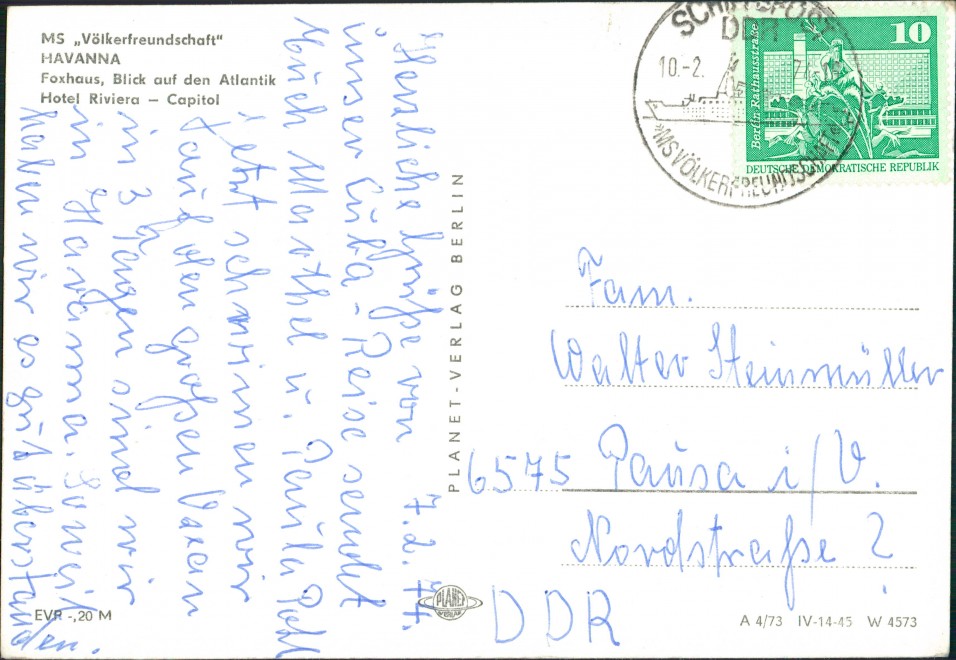 MS „Völkerfreundschaft“
HAVANNA
Foxhaus, Blick auf den Atlantik
Hotel Riviera — Capitol
SCHIFFSPOST
DDR
10.-2.
"MS VÖLKERFREUNDSCHAFT"
10
Berlin, Rathausstraße
DEUTSCHE DEMOKRATISCHE REPUBLIK
7.2.74.
Herzliche Grüße von
unser Cuba-Reise sendet
Euch Marthel u. Paula
jetzt schwimmen wir
auf den großen Ozean
in 3 Tagen sind wir
in Havanna. Soweit
haben wir es gut überstanden.
PLANET-VERLAG BERLIN
Fam.
Walter Steinmüller
6575 Pausa i/V.
Nordstraße 2
DDR
EVP -,20 M
PLANET
VERLAG
A 4/73 IV-14-45 W 4573